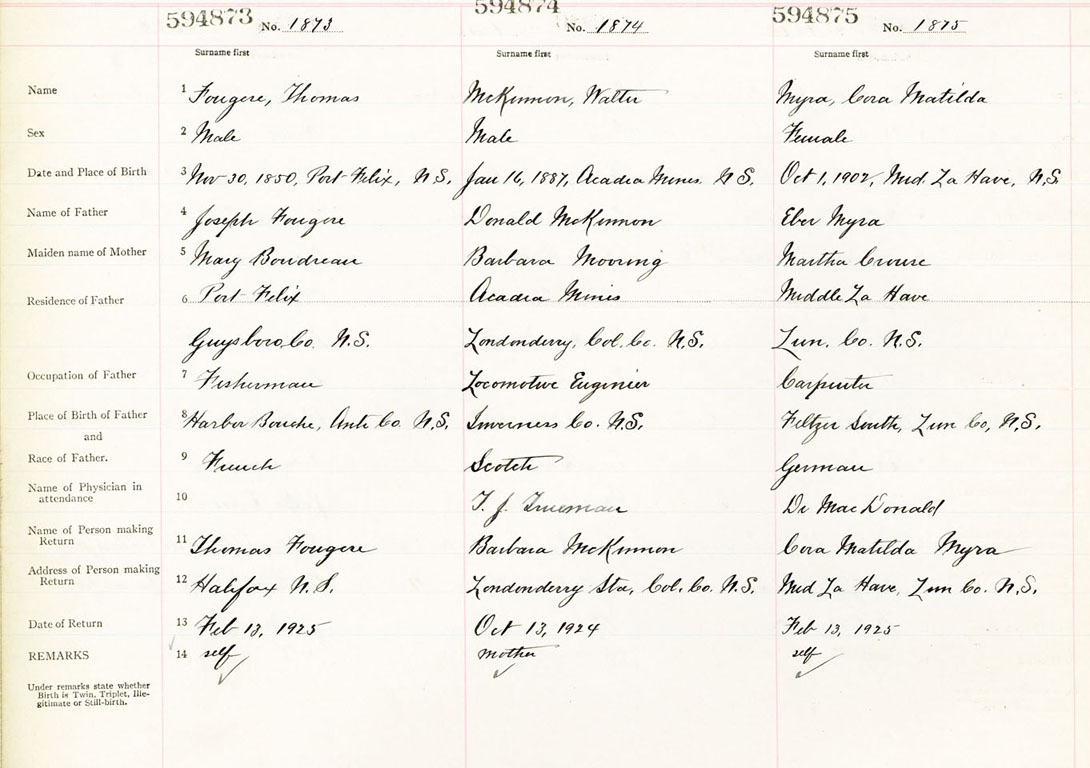 594873 No. 1873 594874 No. 1874 594875 No. 1875
Surname first Surname first Surname first
Name 1 Fougere, Thomas McKinnon, Walter Myra, Cora Matilda
Sex 2 Male Male Female
Date and Place of Birth 3 Nov 30, 1850, Port Felix, N.S. Jan 16, 1887, Acadia Mines N.S. Oct 1, 1902, Mid. La Have, N.S
Name of Father 4 Joseph Fougere Donald McKinnon Eber Myra
Maiden name of Mother 5 Mary Boudreau Barbara Mooring Martha Crouse
Residence of Father 6 Port Felix Acadia Mines Middle La Have
Guysboro Co. N.S. Londonderry, Col. Co. N.S. Lun. Co. N.S.
Occupation of Father 7 Fisherman Locomotive Enginier Carpenter
Place of Birth of Father 8 Harbor Bouche, Anti Co. N.S. Inverness Co. N.S. Feltzen South, Lun Co, N.S.
and
Race of Father. 9 French Scotch German
Name of Physician in
attendance 10 T. J. Trueman Dr MacDonald
Name of Person making
Return 11 Thomas Fougere Barbara McKinnon Cora Matilda Myra
Address of Person making
Return 12 Halifax N.S. Londonderry Sta, Col. Co. N.S. Mid La Have, Lun Co. N.S.
Date of Return 13 Feb 13, 1925 Oct 13, 1924 Feb 13, 1925
REMARKS 14 self mother self
Under remarks state whether
Birth is Twin, Triplet, Ille-
gitimate or Still-birth.